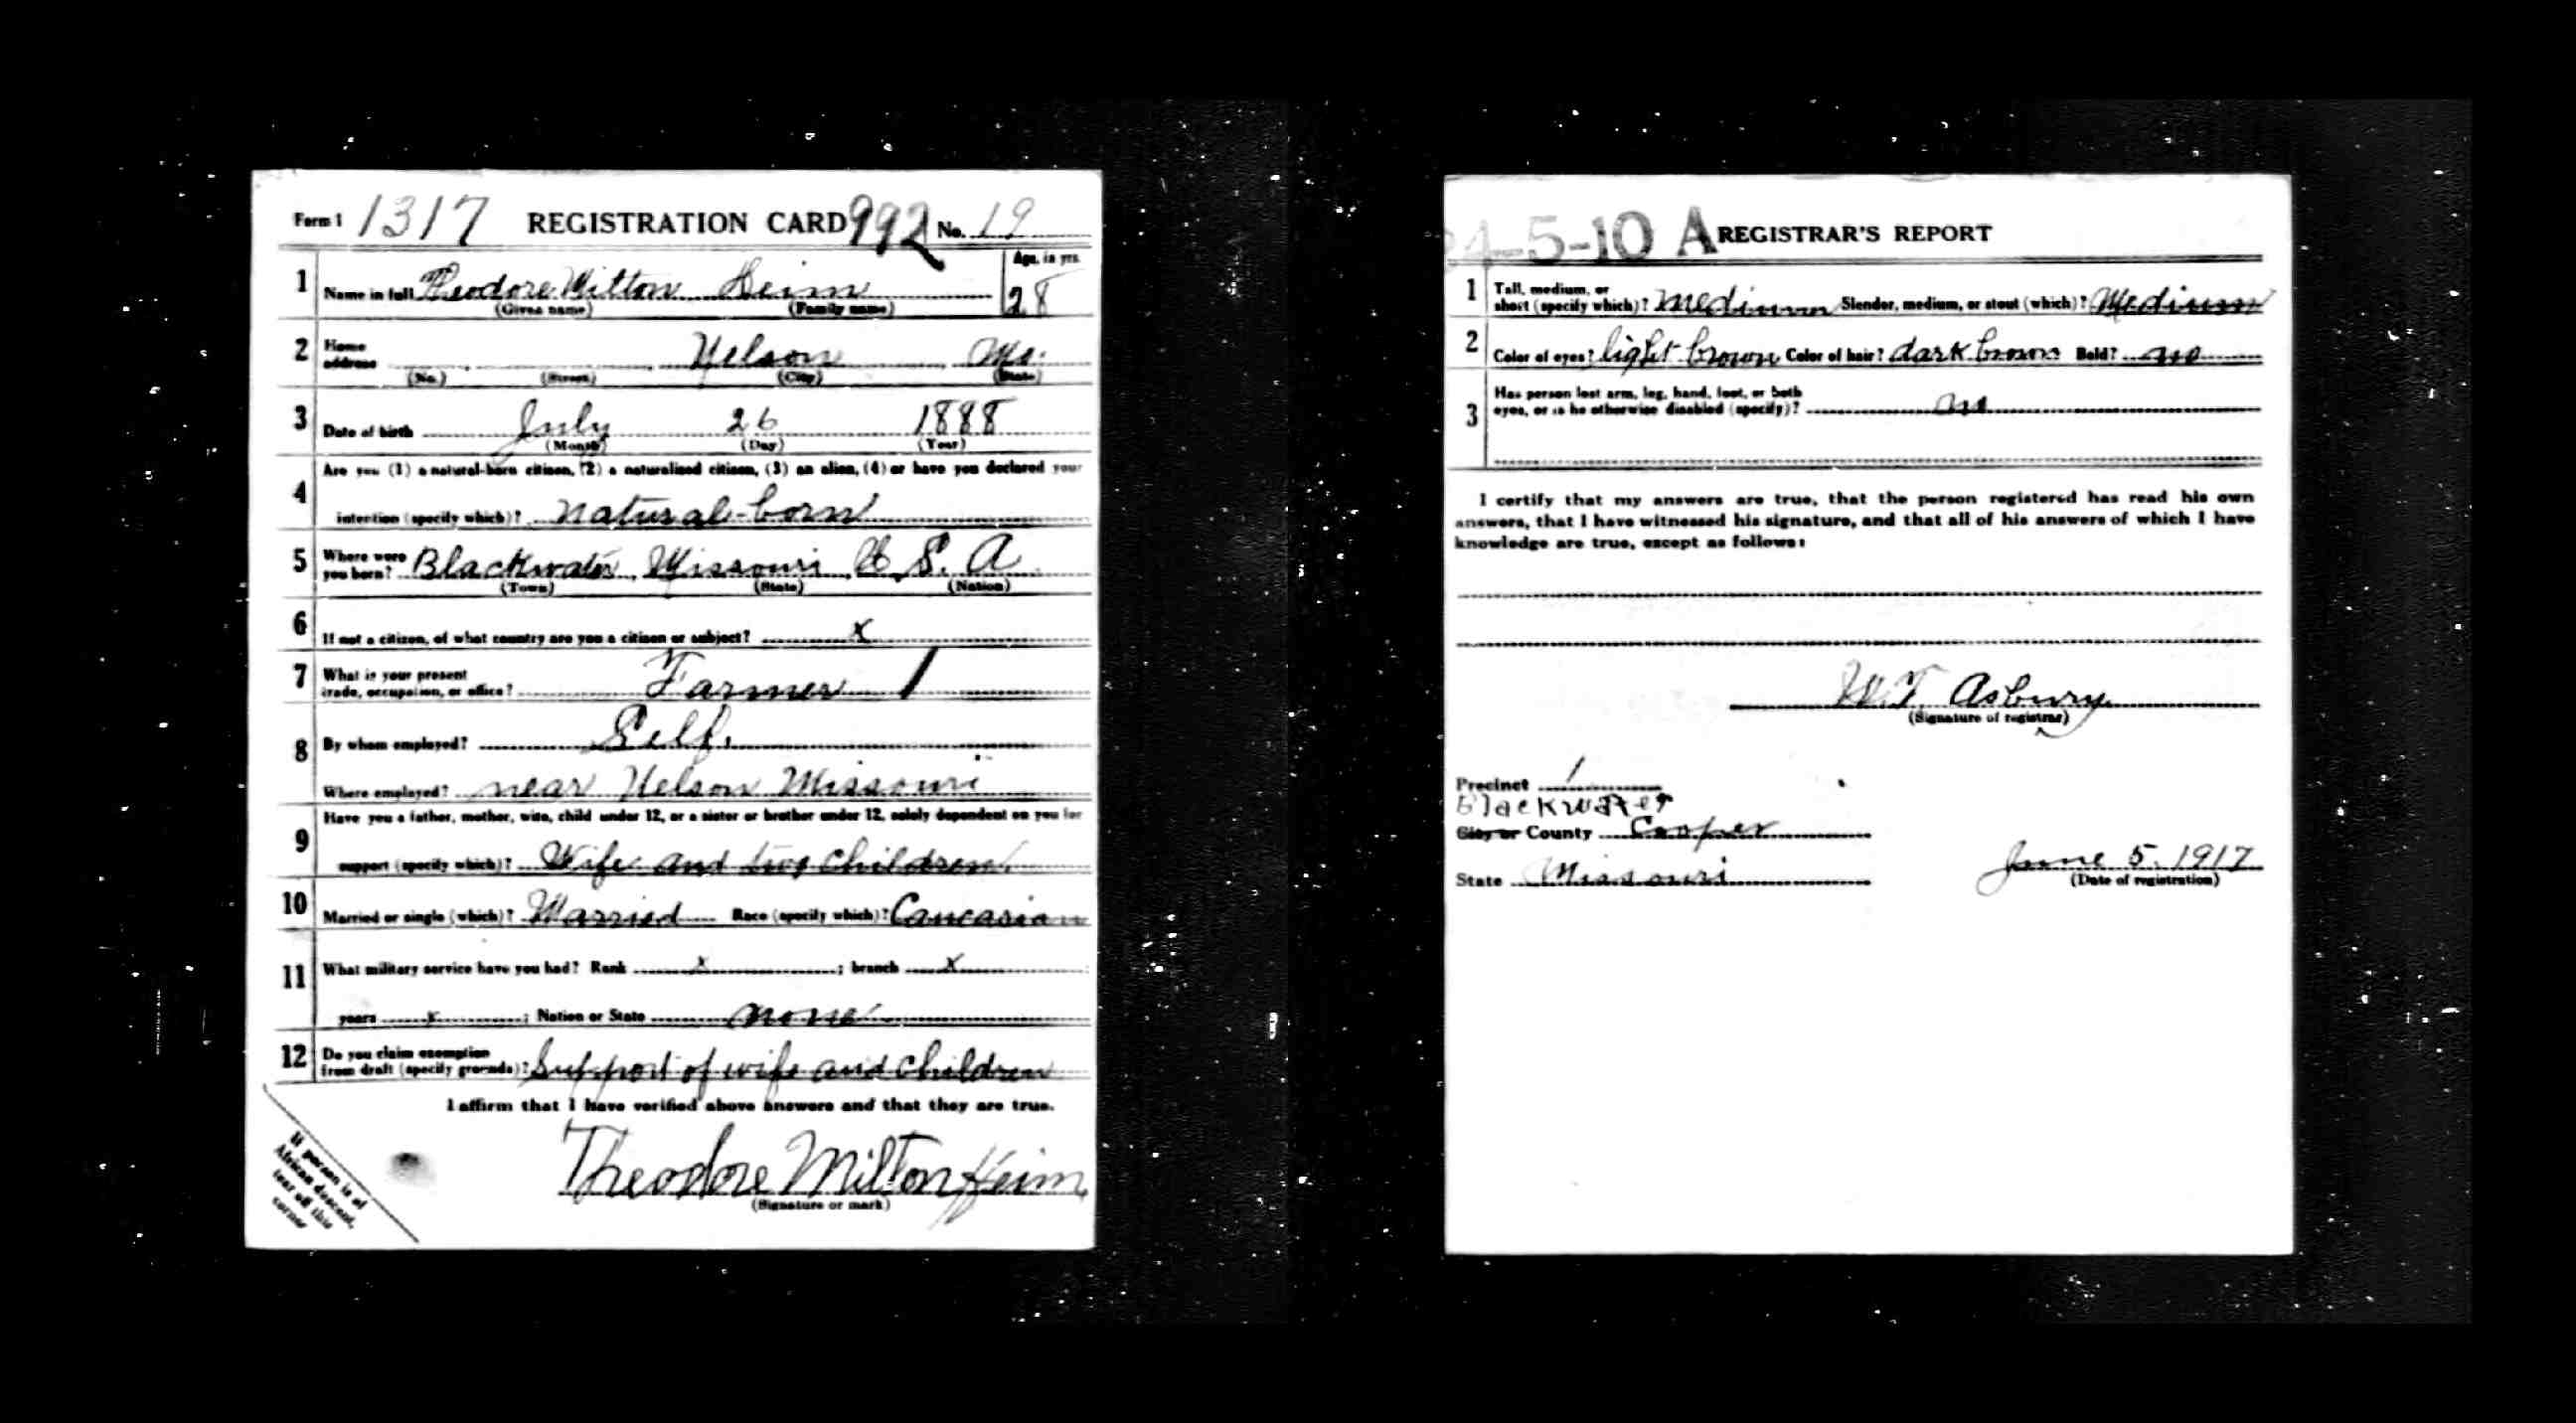 Form 1 1317 REGISTRATION CARD 992 No. 19
1 Name in full Theodore Milton Heim Age, in yrs. 28
(Given name) (Family name)
2 Home address Nelson Mo.
(No.) (Street) (City) (State)
3 Date of birth July 26 1888
(Month) (Day) (Year)
Are you (1) a natural-born citizen, (2) a naturalized citizen, (3) an alien, (4) or have you declared your
4 intention (specify which)? natural-born
5 Where were you born? Blackwater, Missouri, U S. A
(Town) (State) (Nation)
6 If not a citizen, of what country are you a citizen or subject? x
7 What is your present trade, occupation, or office? Farmer 1
8 By whom employed? Self.
Where employed? near Nelson Missouri
Have you a father, mother, wife, child under 12, or a sister or brother under 12, solely dependent on you for
9 support (specify which)? Wife and two children.
10 Married or single (which)? Married Race (specify which)? Caucasian
11 What military service have you had? Rank x ; branch x
years x ; Nation or State none
12 Do you claim exemption from draft (specify grounds)? Support of wife and children
I affirm that I have verified above answers and that they are true.
Theodore Milton Heim
(Signature or mark)
If person is of
African descent,
tear off this
corner
24-5-10 A REGISTRAR'S REPORT
1 Tall, medium, or short (specify which)? medium Slender, medium, or stout (which)? Medium
2 Color of eyes? light brown Color of hair? dark brown Bald? no
3 Has person lost arm, leg, hand, foot, or both
eyes, or is he otherwise disabled (specify)? no
I certify that my answers are true, that the person registered has read his own
answers, that I have witnessed his signature, and that all of his answers of which I have
knowledge are true, except as follows:
W. T. Asbury
(Signature of registrar)
Precinct 1
Blackwater
City or County Cooper
State Missouri June 5. 1917
(Date of registration)